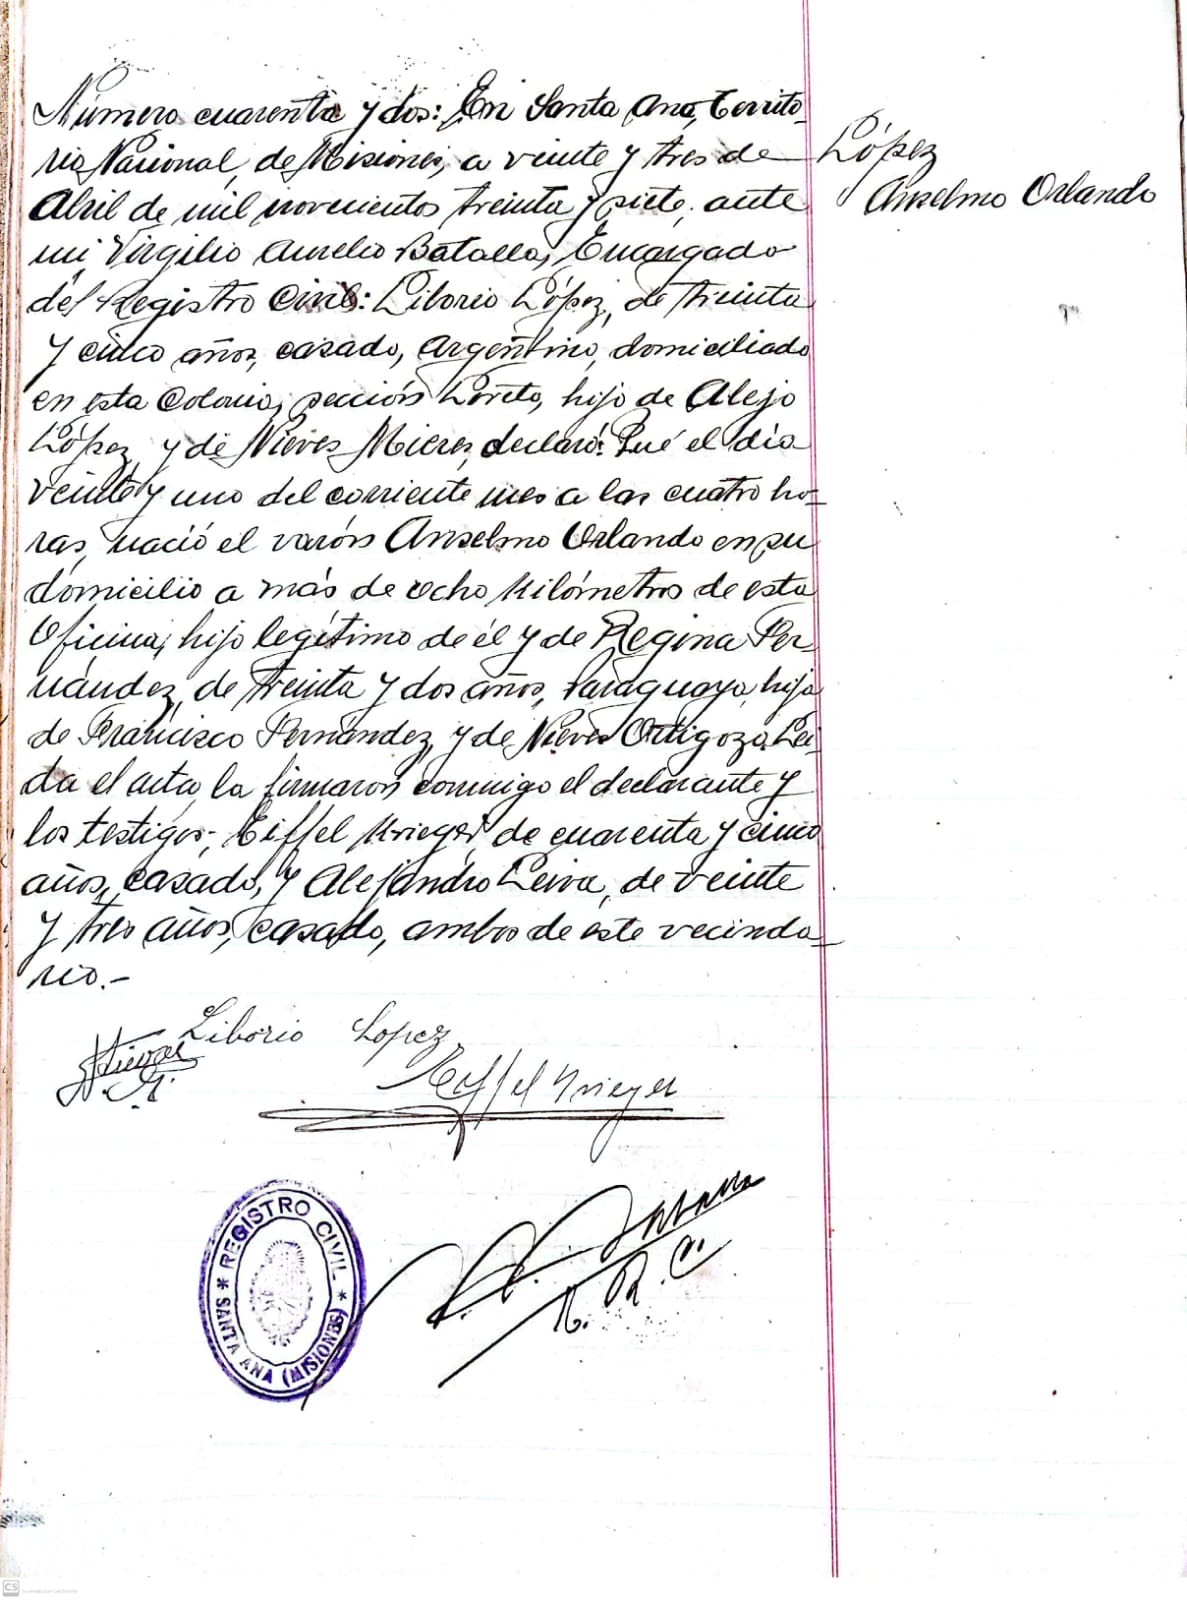 Número cuarenta y dos: En Santa Ana, Territo-
rio Nacional de Misiones, a veinte y tres de
Abril de mil novecientos treinta y siete, ante
mi Virgilio Aurelio Batalla, Encargado
del Registro Civil: Liborio López, de treinta
y cinco años, casado, Argentino, domiciliado
en esta Colonia, sección Loreto, hijo de Alejo
López y de Nieves Mieres, declaró: Qué el día
veinte y uno del corriente mes a las cuatro ho-
ras, nació el varón Anselmo Orlando en su
domicilio a más de ocho kilómetros de esta
Oficina; hijo legítimo de él y de Regina Fer-
nández, de treinta y dos años, Paraguaya, hija
de Francisco Fernández, y de Nieves Ortigoza. Leí-
da el acta, la firmaron conmigo el declarante y
los testigos; Eiffel Krieger, de cuarenta y cinco
años, casado, y Alejandro Leiva, de veinte
y tres años, casado, ambos de este vecinda-
rio.-
López
Anselmo Orlando
Liborio Lopez
Eiffel Krieger
REGISTRO CIVIL
* SANTA ANA (MISIONES) *
CS